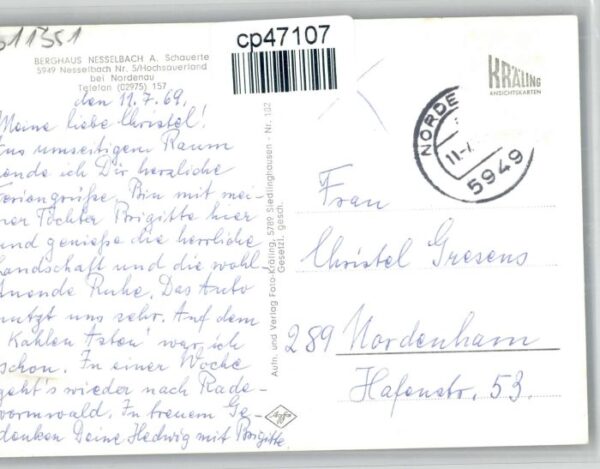 511351
cp47107
BERGHAUS NESSELBACH A. Schauerte
5949 Nesselbach Nr. 5/Hochsauerland
bei Nordenau
Telefon (02975) 157
KRÄLING
ANSICHTSKARTEN
NORDE
11-
5949
den 11.7.69.
Meine liebe Christel!
Aus umseitigem Raum
sende ich Dir herzliche
Feriengrüße. Bin mit mei-
ner Tochter Brigitte hier
und genieße die herrliche
Landschaft und die wohl-
tuende Ruhe. Das Auto
nutzt uns sehr. Auf dem
Kahlen Asten' war ich
schon. In einer Woche
geht's wieder nach Rade-
vormwald. In treuem Ge-
denken Deine Hedwig mit Brigitte.
Aufn. und Verlag Foto-Kräling, 5789 Siedlinghausen - Nr. 132
Gesetzl. gesch.
Agfa
Frau
Christel Gresens
289 Nordenham
Hafenstr. 53.